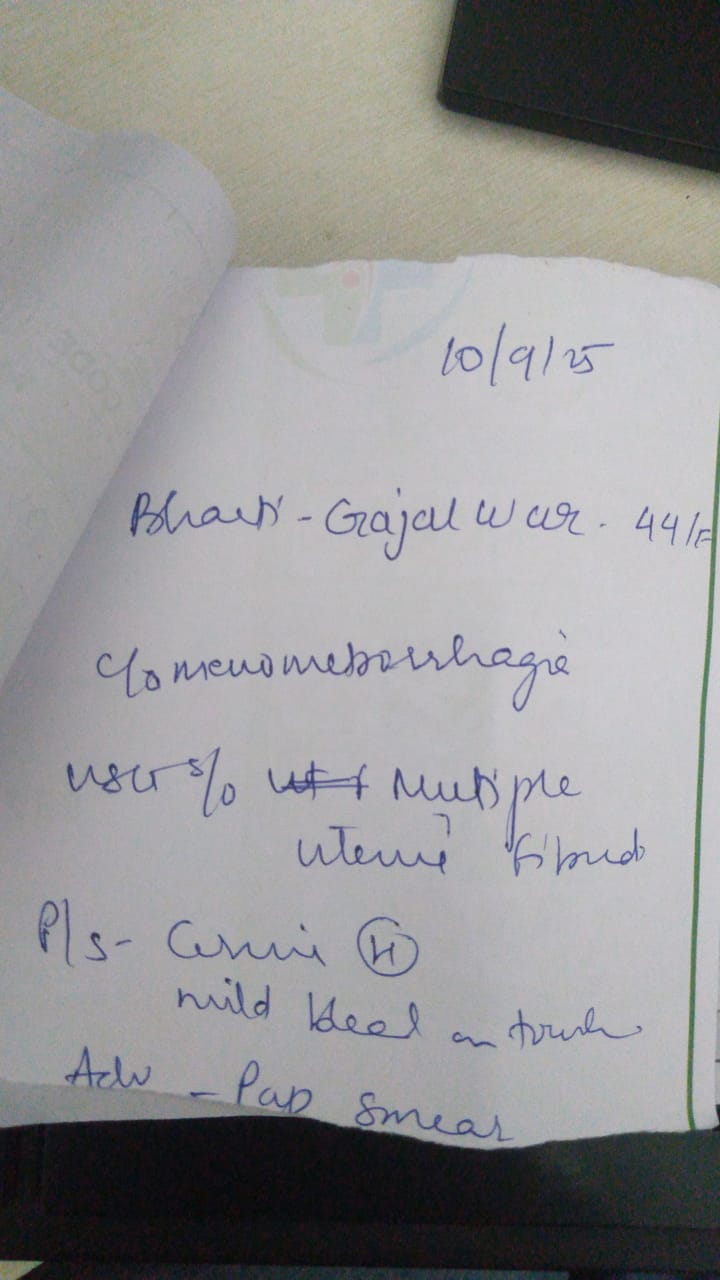 10/9/25
Bharti - Gajalwar. 44/F
c/o menometrorrhagia
USG s/o Multiple
uterine fibroid
P/s - Cervix (H)
mild bleed on touch
Adv - Pap smear
CODE